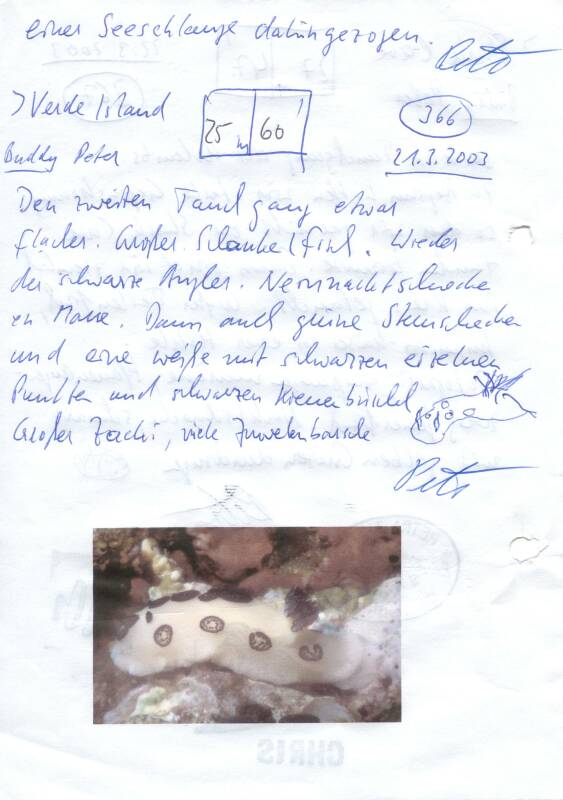 einer Seeschlange dahingezogen.
Peter
> Verde Island
25 m 60
366
Buddy Peter
21.3.2003
Den zweiten Tauchgang etwas
flacher. Großer Schaukelfisch. Wieder
der schwarze Angler. Neonnacktschnecke
en Masse. Dann auch grüne Sternschnecken
und eine weiße mit schwarzen einzelnen
Punkten und schwarzen Kiemenbüschel
Großer Zacki, viele Juwelenbarsche
Peter
CHRIS